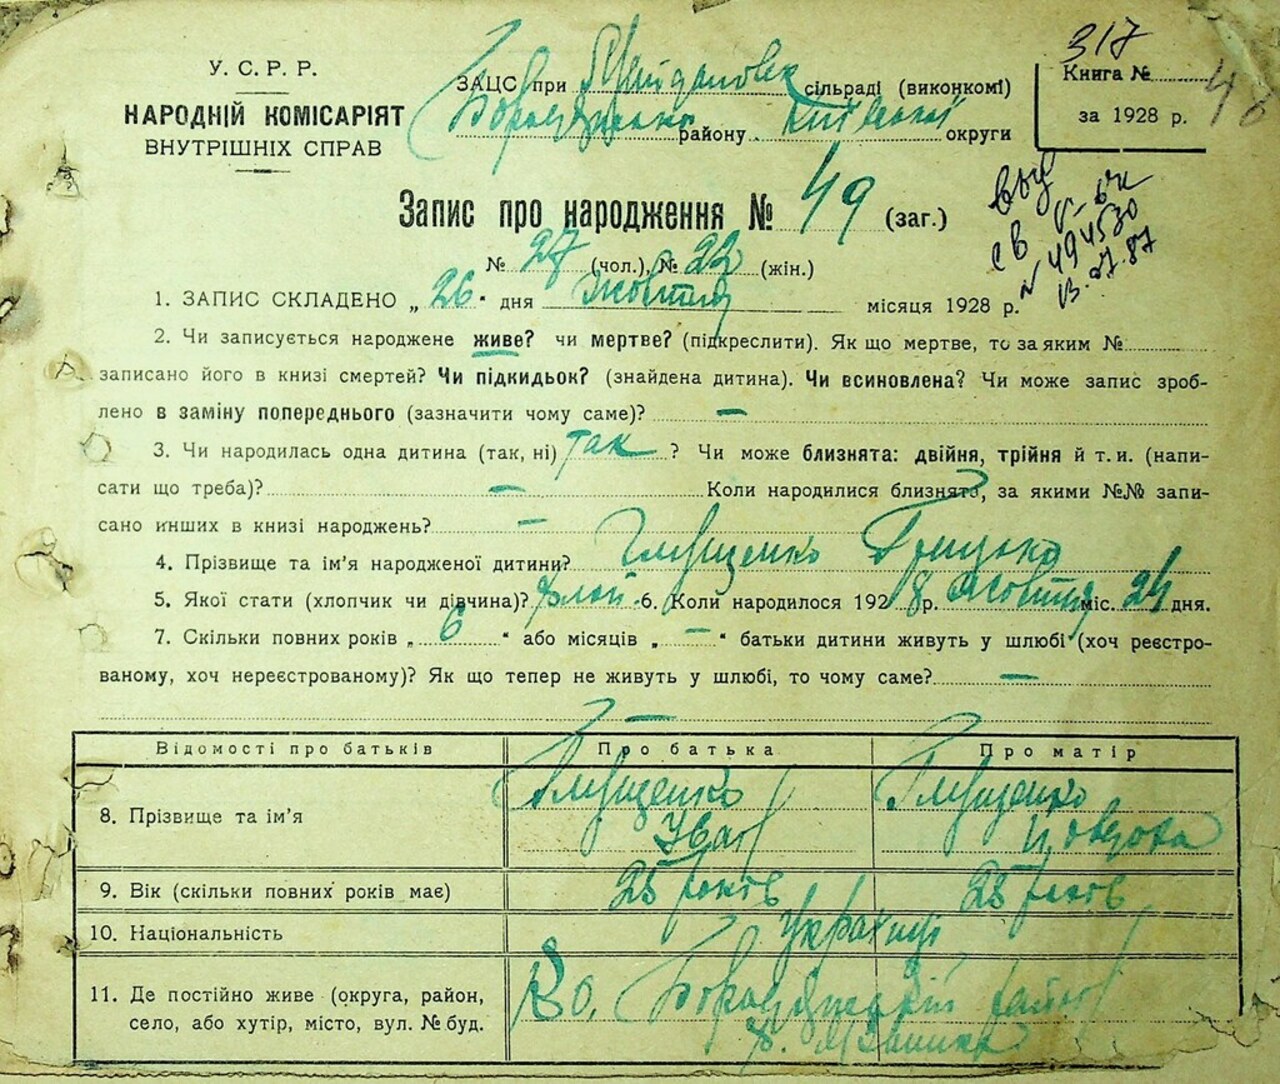 317
У. С. Р. Р.
НАРОДНІЙ КОМІСАРІЯТ
ВНУТРІШНІХ СПРАВ
ЗАЦС при сільраді (виконкомі)
району Київської округи
Книга №
за 1928 р.
46
Запис про народження № 49 (заг.)
№ 27 (чол.), № 22 (жін.)
св
№ 494530
13.07.87
1. ЗАПИС СКЛАДЕНО „ 26 “ дня Жовтня місяця 1928 р.
2. Чи записується народжене живе? чи мертве? (підкреслити). Як що мертве, то за яким №
записано його в книзі смертей? Чи підкидьок? (знайдена дитина). Чи всиновлена? Чи може запис зроб-
лено в заміну попереднього (зазначити чому саме)? —
3. Чи народилась одна дитина (так, ні) так ? Чи може близнята: двійня, трійня й т. и. (напи-
сати що треба)? — Коли народилися близнята, за якими №№ запи-
сано инших в книзі народжень? —
4. Прізвище та ім’я народженої дитини? Глущенко Грицько
5. Якої стати (хлопчик чи дівчина)? 6. Коли народилося 1928 р. Жовтня міс. 24 дня.
7. Скільки повних років „ 6 “ або місяців „ — “ батьки дитини живуть у шлюбі (хоч реєстро-
ваному, хоч нереєстрованому)? Як що тепер не живуть у шлюбі, то чому саме? —
—
Відомості про батьків Про батька Про матір
8. Прізвище та ім’я Глущенко Іван Глущенко
9. Вік (скільки повних років має) 25 років 28 років
10. Національність Українці
11. Де постійно живе (округа, район,
село, або хутір, місто, вул. № буд.